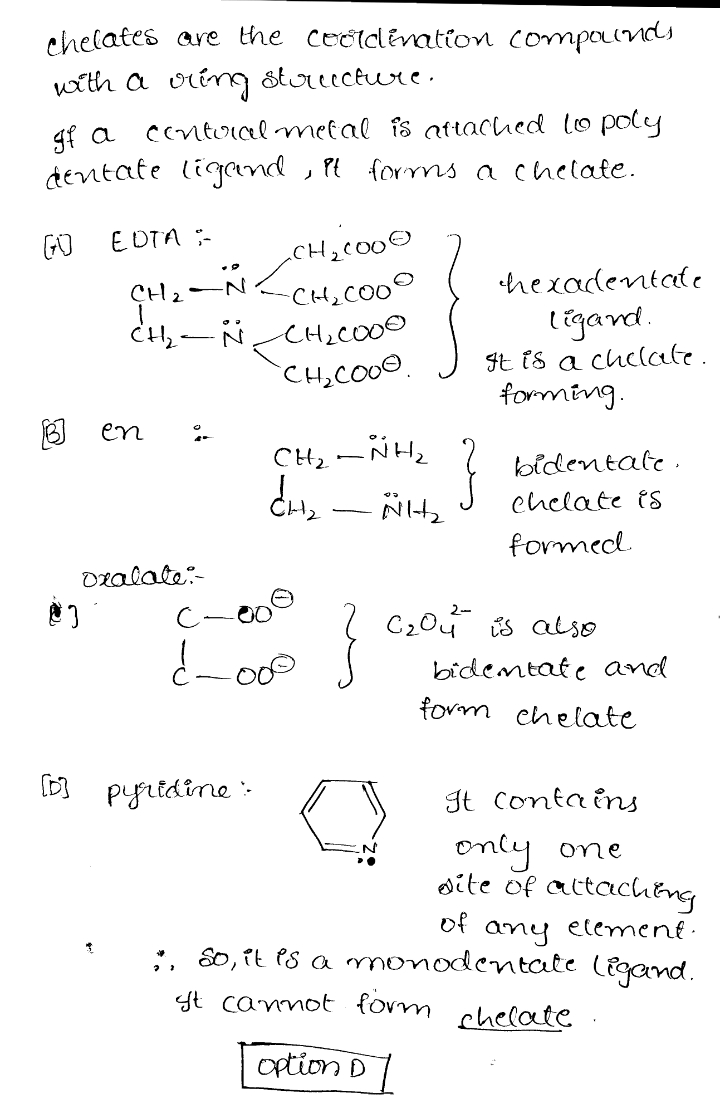 chelates are the coordination compounds
with a ring structure.
If a central metal is attached to poly
dentate ligand, it forms a chelate.
[A] EDTA :-
CH₂COO⊖
CH₂—N̈ CH₂COO⊖
CH₂—N̈ CH₂COO⊖
CH₂COO⊖.
hexadentate
ligand.
It is a chelate.
forming.
[B] en :-
CH₂—N̈H₂
CH₂—N̈H₂
bidentate.
chelate is
formed
oxalate:-
C—OO⊖
C—OO⊖
C₂O₄²⁻ is also
bidentate and
form chelate
[D] pyridine :-
N
It contains
only one
site of attaching
of any element.
∴ So, it is a monodentate ligand.
It cannot form chelate.
option D